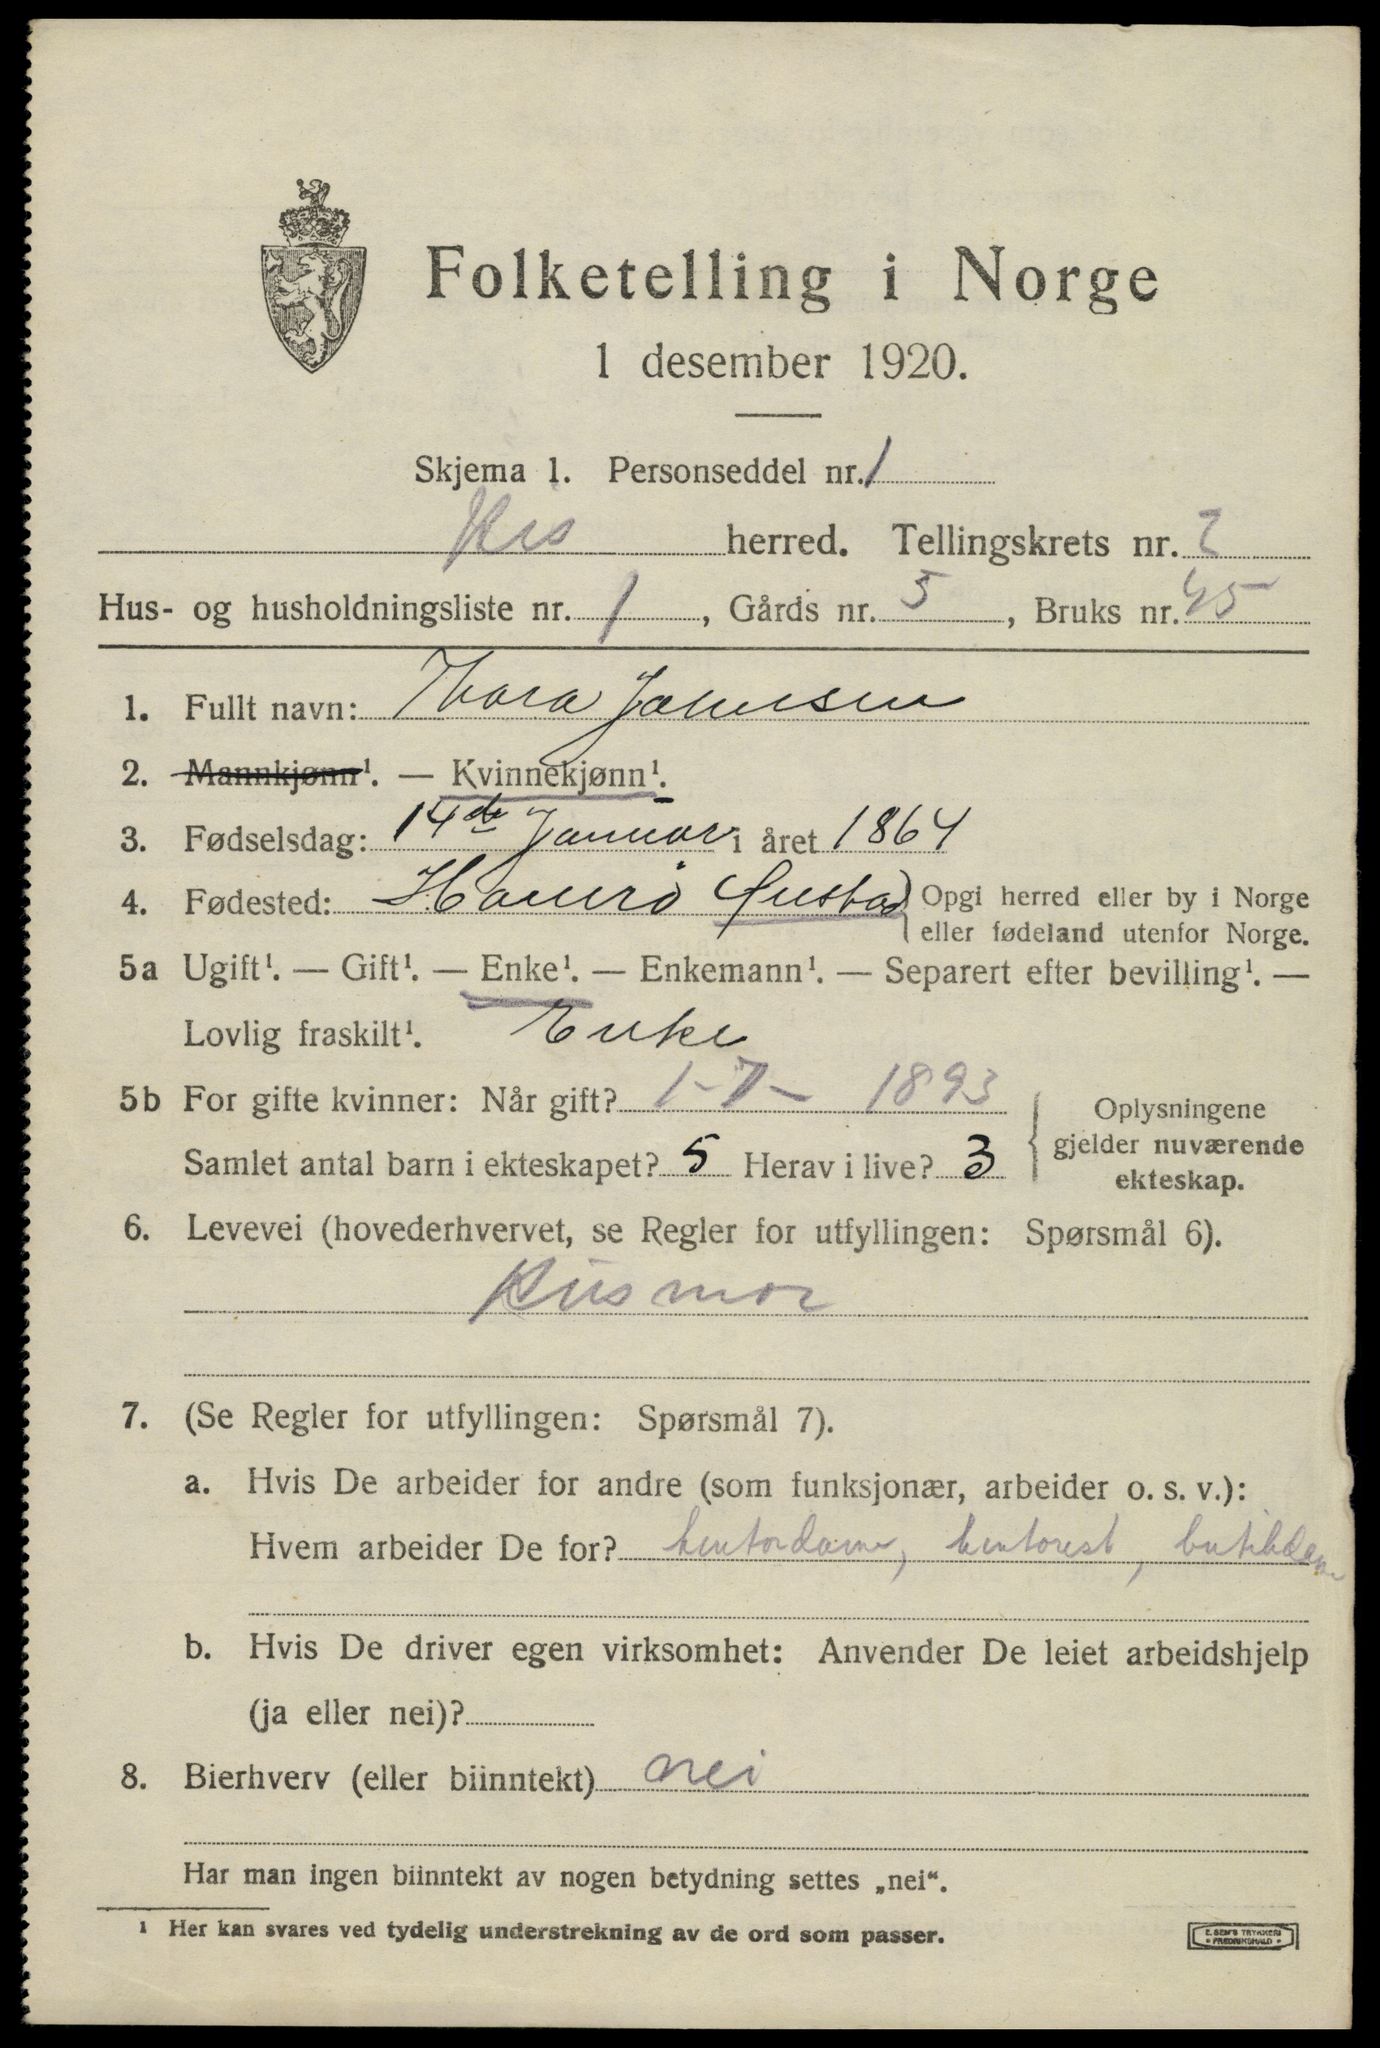 Folketelling i Norge
1 desember 1920.
Skjema 1. Personseddel nr. 1
His herred. Tellingskrets nr. 2
Hus- og husholdningsliste nr. 1, Gårds nr. 5, Bruks nr. 45
1. Fullt navn: Thora Johnsen
2. Mannkjønn¹. — Kvinnekjønn¹.
3. Fødselsdag: 14de Januar i året 1864
4. Fødested: Øiestad Opgi herred eller by i Norge
eller fødeland utenfor Norge.
5a Ugift¹. — Gift¹. — Enke¹. — Enkemann¹. — Separert efter bevilling¹. —
Lovlig fraskilt¹. Enke
5b For gifte kvinner: Når gift? 1-7- 1893
Samlet antal barn i ekteskapet? 5 Herav i live? 3
Oplysningene
gjelder nuværende
ekteskap.
6. Levevei (hovederhvervet, se Regler for utfyllingen: Spørsmål 6).
Husmor
7. (Se Regler for utfyllingen: Spørsmål 7).
a. Hvis De arbeider for andre (som funksjonær, arbeider o. s. v.):
Hvem arbeider De for? kontordame, kontorist, butikdame
b. Hvis De driver egen virksomhet: Anvender De leiet arbeidshjelp
(ja eller nei)?
8. Bierhverv (eller biinntekt) nei
Har man ingen biinntekt av nogen betydning settes „nei“.
¹ Her kan svares ved tydelig understrekning av de ord som passer.
E. SEM'S TRYKKERI
FREDRIKSHALD